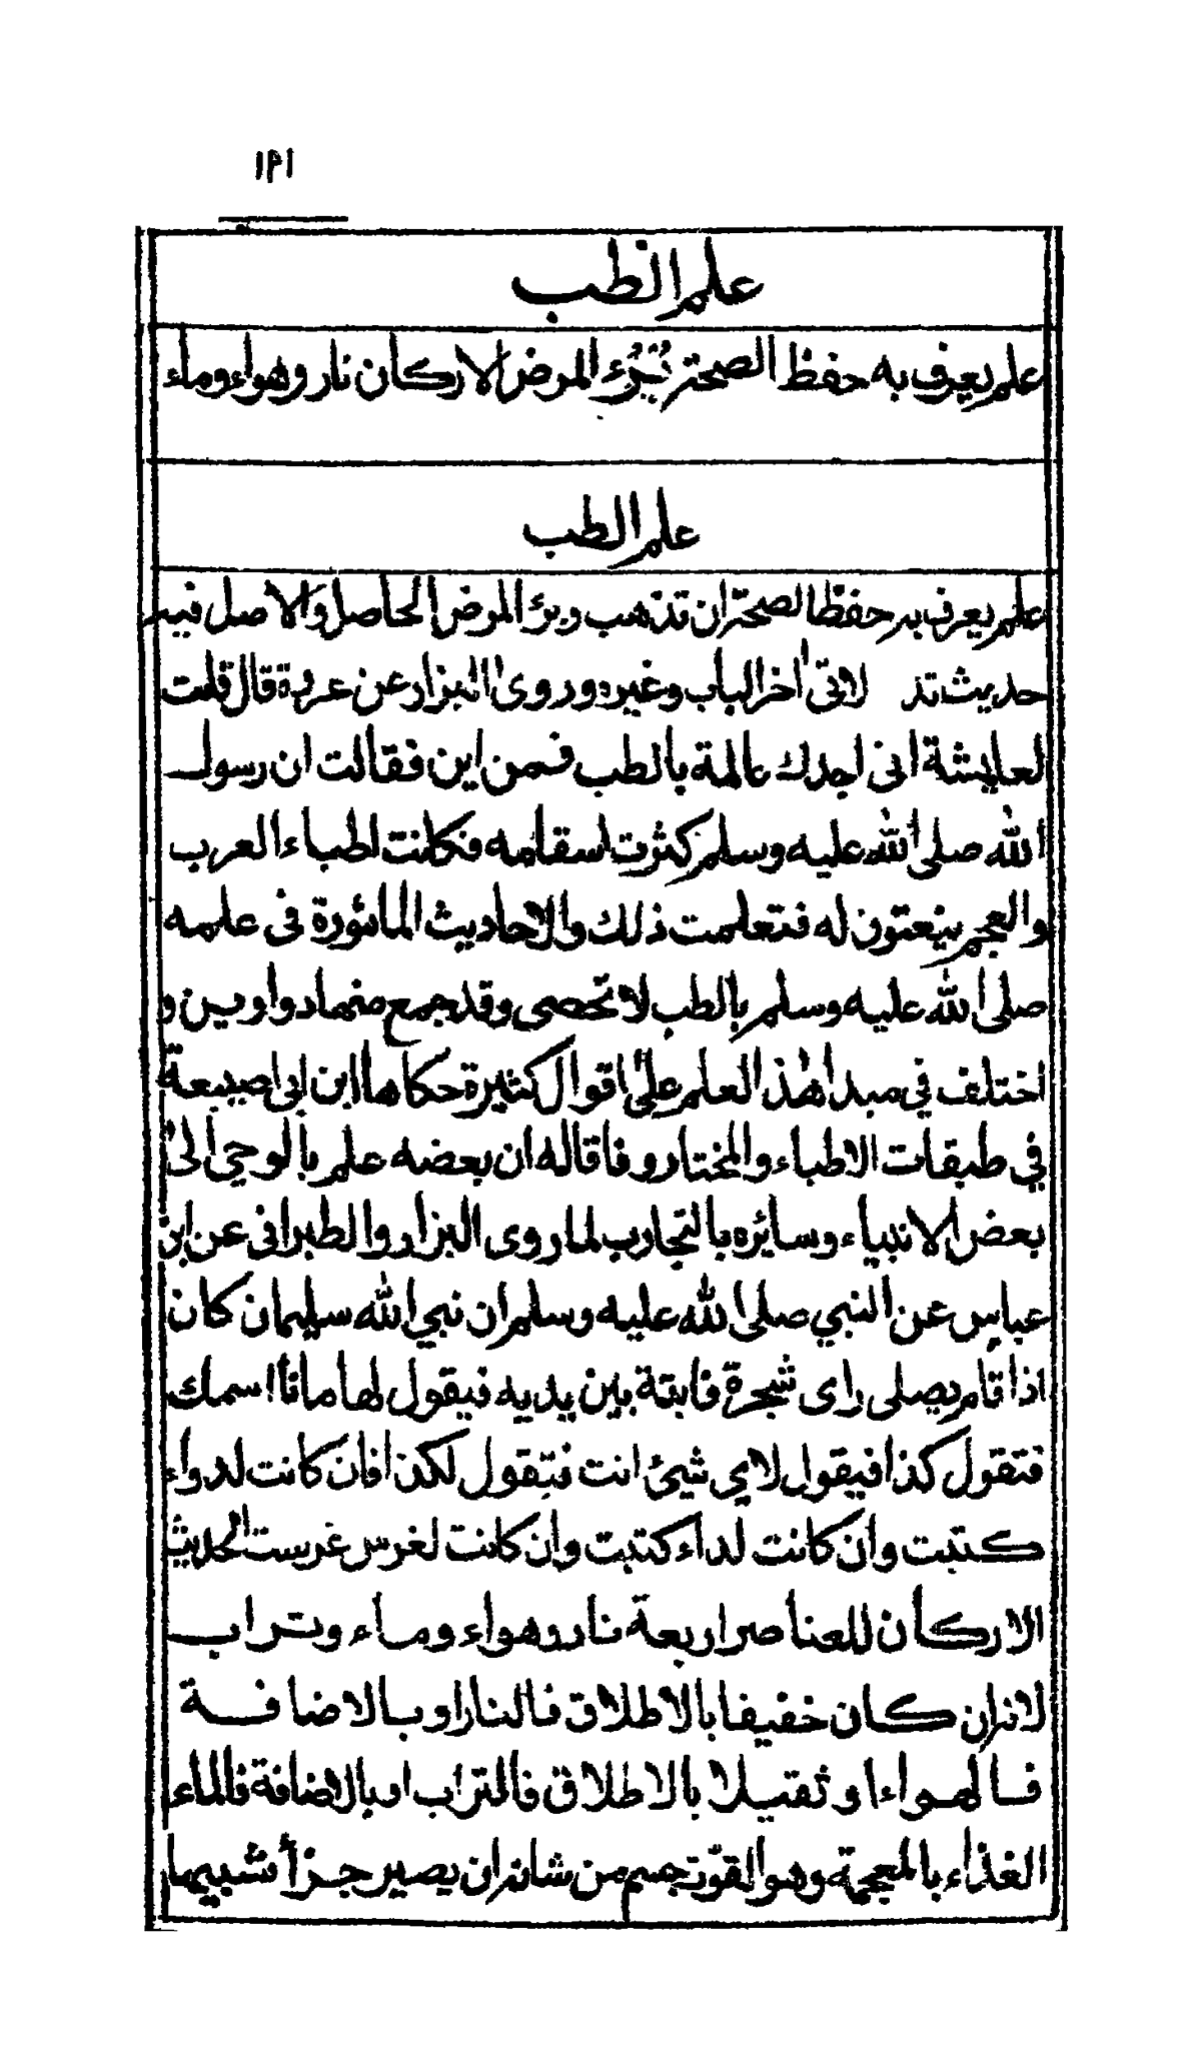 ١٩١
علم الطب
علم يعرف به حفظ الصحة وبُرْء المرض الاركان نار وهواء وماء
علم الطب
علم يعرف به حفظ الصحة ان تذهب وبرؤ المرض الحاصل والاصل فيه
حديث تد لاتى اخر الباب وغيره وروى البزار عن عروة قال قلت
لعايشة انى اجدك عالمة بالطب فمن اين فقالت ان رسول
الله صلى الله عليه وسلم كثرت اسقامه فكانت اطباء العرب
والعجم ينعتون له فتعلمت ذلك والاحاديث الماثورة فى علمه
صلى الله عليه وسلم بالطب لا تحصى وقد جمع منها دواوين و
اختلف في مبدا هذا العلم على اقوال كثيرة حكاها ابن ابى اصيبعة
في طبقات الاطباء والمختار وفاقا له ان بعضه علم بالوحي الى
بعض الانبياء وسائره بالتجارب لما روى البزار والطبرانى عن ابن
عباس عن النبي صلى الله عليه وسلم ان نبي الله سليمان كان
اذا قام يصلى راى شجرة نابتة بين يديه فيقول لها ما اسمك
فتقول كذا فيقول لاي شيئ انت فتقول لكذا فان كانت لدواء
كتبت وان كانت لداء كتبت وان كانت لغرس غرست الحديث
الاركان للعناصر اربعة نار وهواء وماء وتراب
لانه ان كان خفيفا بالاطلاق فالنار او بالاضافة
فالهواء او ثقيلا بالاطلاق فالتراب او بالاضافة فالماء
الغذاء بالمعجمة وهو القوت جسم من شانه ان يصير جزأ شبيها